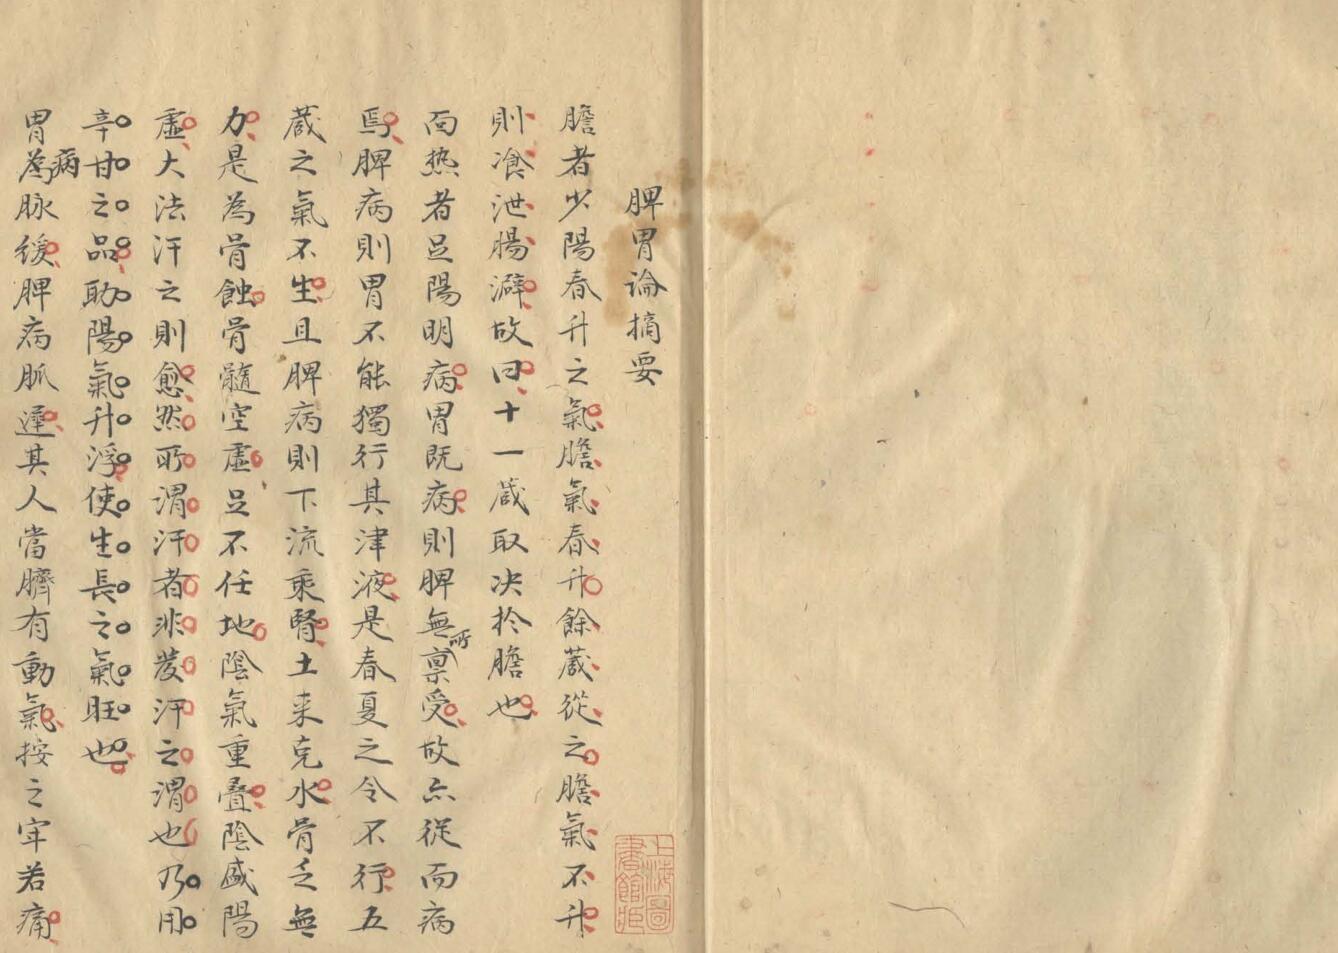 脾胃論摘要
膽者少陽春升之氣膽氣春升餘蔵從之膽氣不升
則飧泄腸澼故曰十一蔵取决於膽也
面热者足陽明病胃既病則脾無所禀受故亦從而病
焉脾病則胃不能獨行其津液是春夏之令不行五
蔵之氣不生且脾病則下流乘腎土来克水骨乏無
力是為骨蝕骨髓空虛足不任地陰氣重疊陰盛陽
虛大法汗之則愈然所謂汗者非發汗之謂也乃用
辛甘之品助陽氣升浮使生長之氣旺也
胃病為脉緩脾病脈遲其人當臍有動氣按之牢若痛
上海圖書館臧